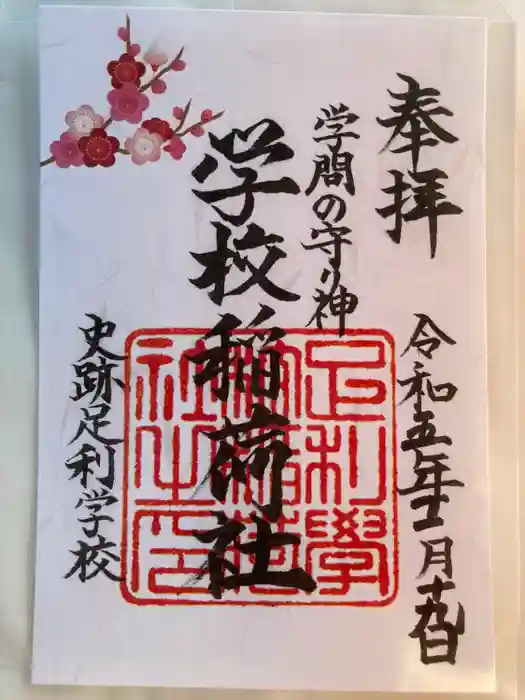 奉拝
令和五年十二月十九日
学問の守り神
学校稲荷社
史跡足利学校
足利學
校稲荷
社之印